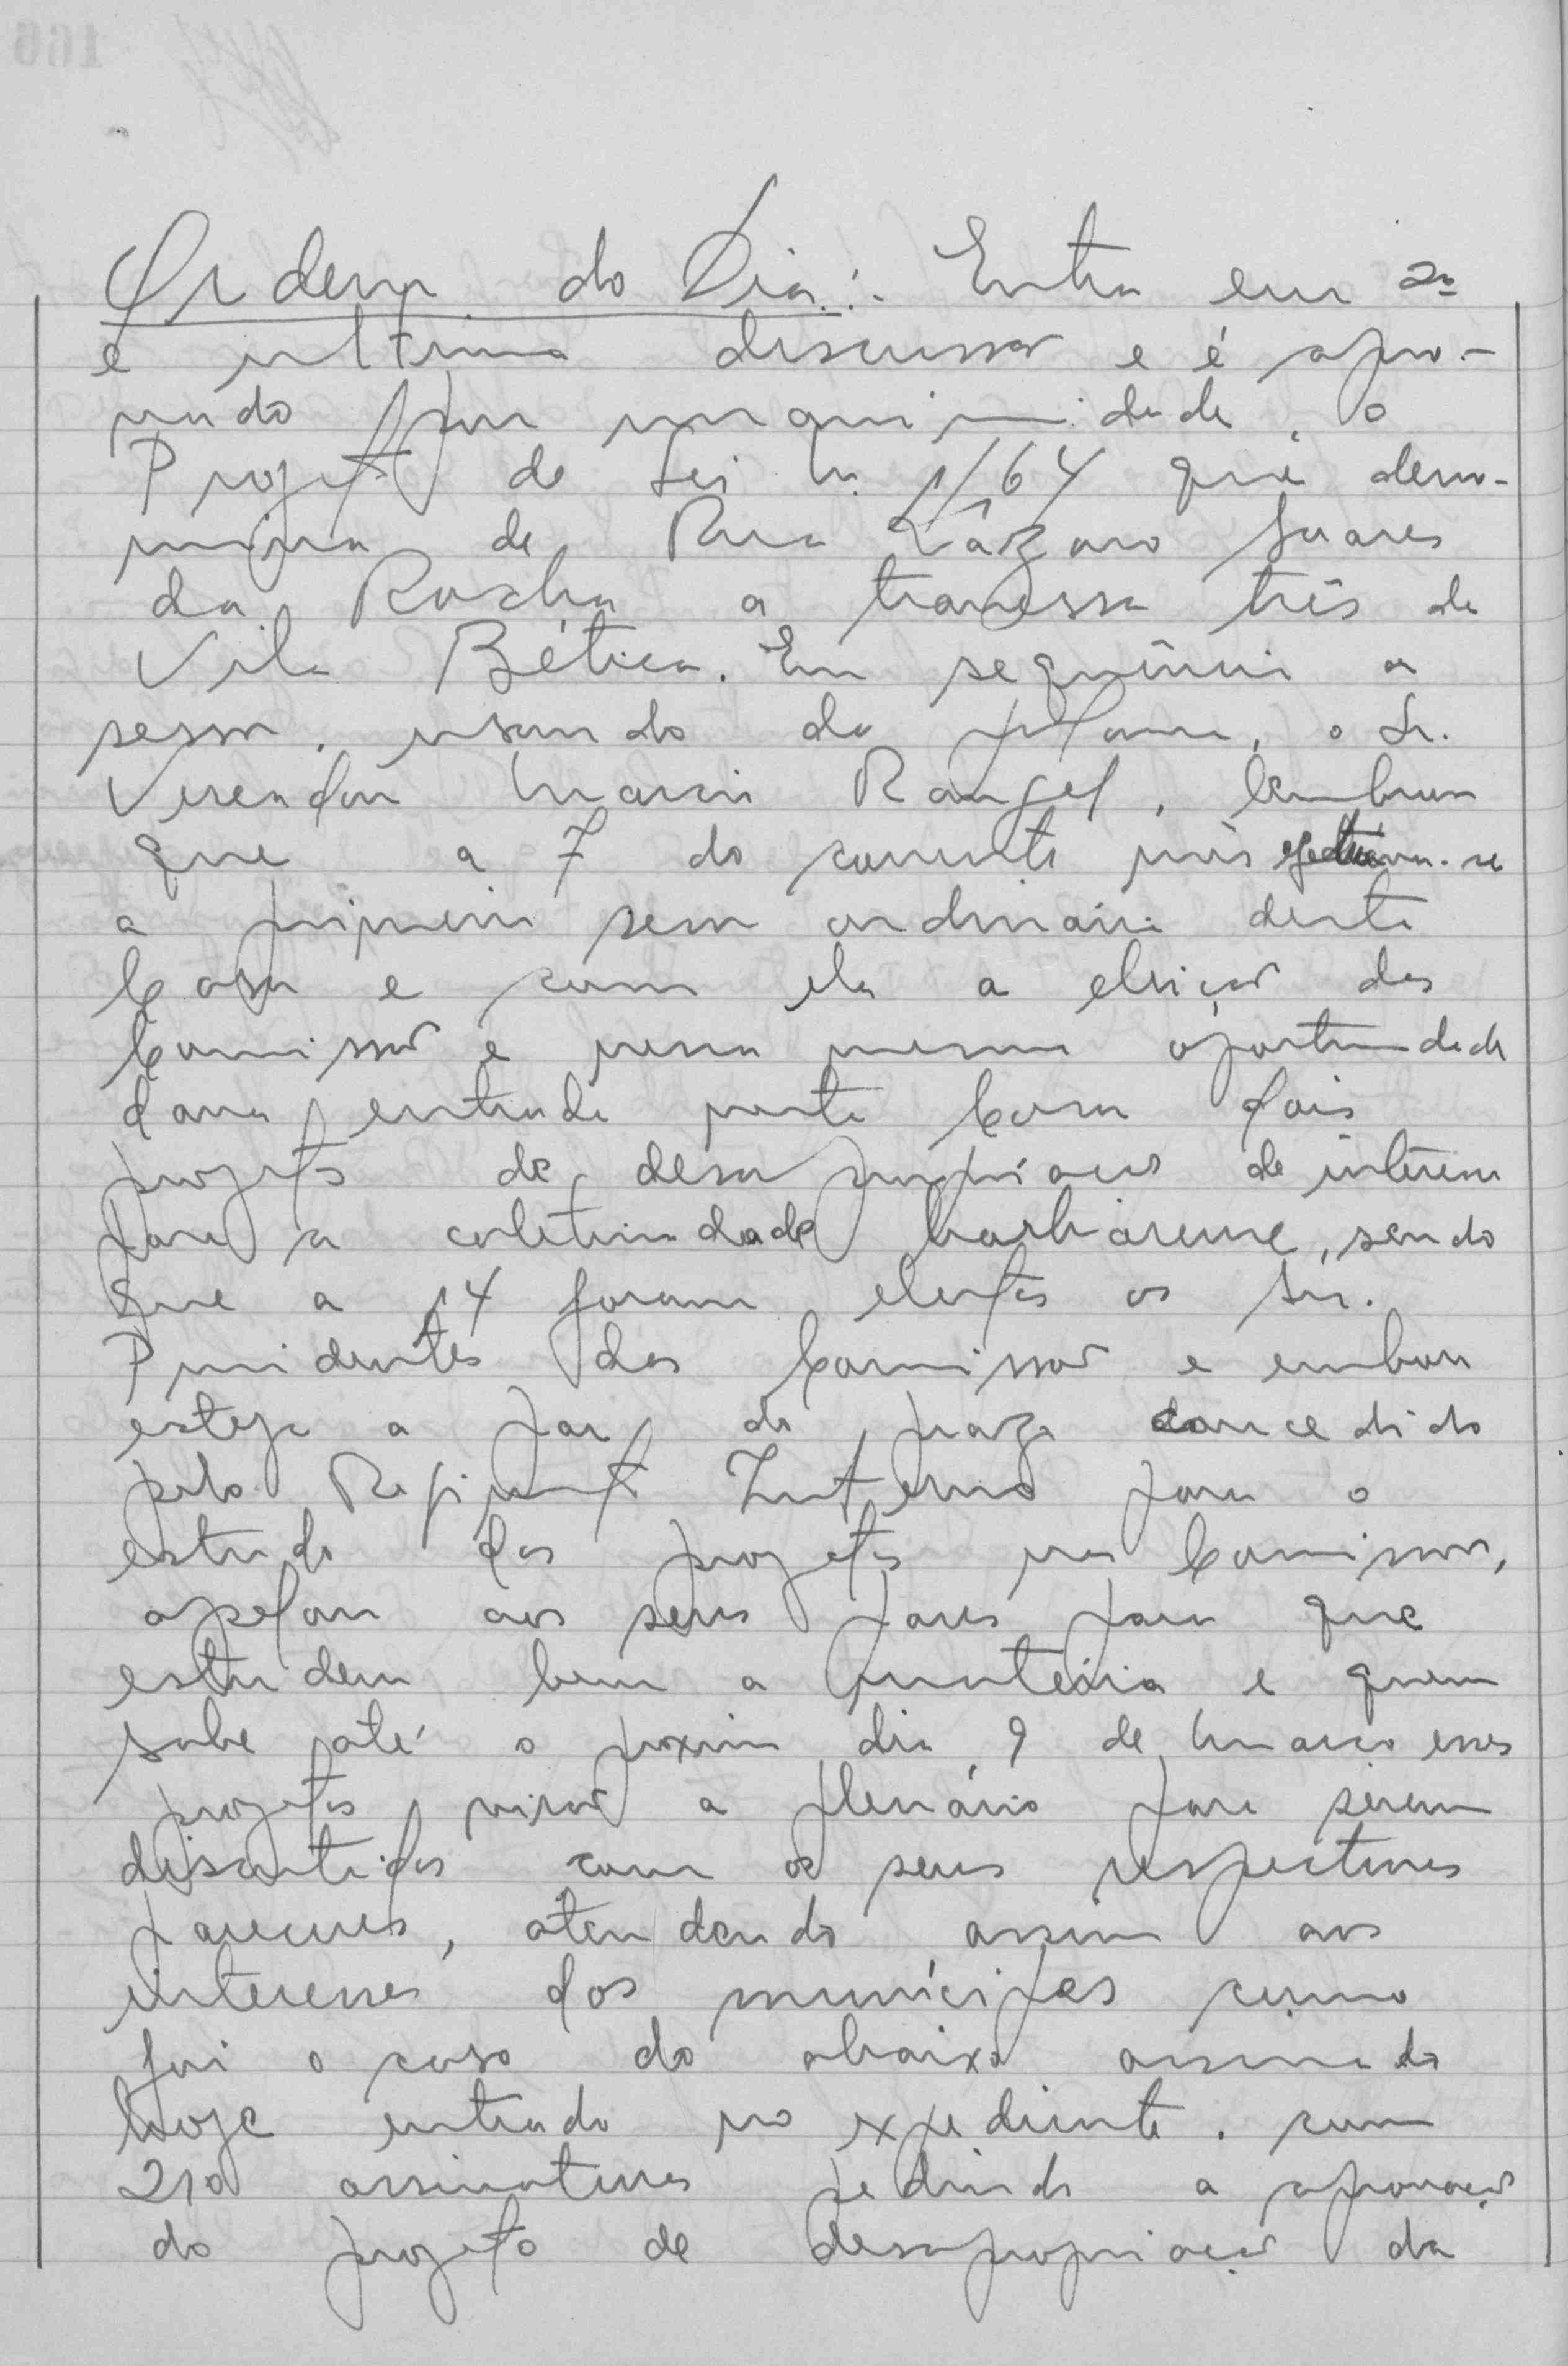 Ordem do Dia: Entra em 2ª
e ultima discussão e é apro-
vado por unanimidade, o
Projeto de Lei n. 1/64 que deno-
mina de Rua Lázaro Soares
da Rocha a travessa três da
Vila Bética. Em sequência a
sessão, usando da palavra, o Sr.
Vereador Mario Rangel, lembrou
que a 7 do corrente mês efetivou-se
a primeira sessão ordinária desta
Casa e com ela a eleição das
Comissões e nessa mesma oportunidade
dava entrada nesta Casa dois
projetos de desapropriações de interesse
para a coletividade barbarense, sendo
que a 14 foram eleitos os Srs.
Presidentes das Comissões e embora
esteja a par do prazo concedido
pelo Regimento Interno para o
estudo dos projetos nas Comissões,
apelava aos seus pares para que
estudem bem a matéria e quem
sabe até o proximo dia 9 de março esses
projetos virão a plenário para serem
discutidos com os seus respectivos
pareceres, atendendo assim aos
interesses dos munícipes como
foi o caso do abaixo assinado
hoje entrado no expediente, com
210 assinaturas pedindo a aprovação
do projeto de desapropriação da